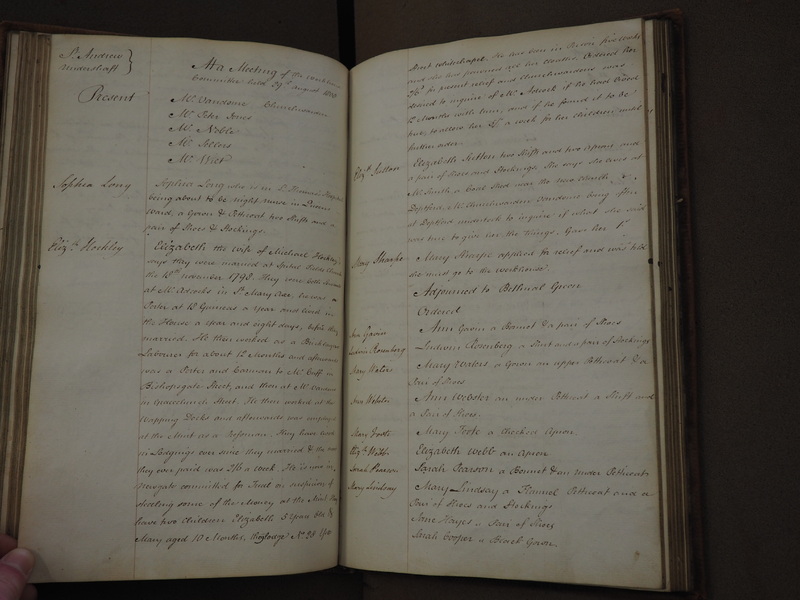 St. Andrew
Undershaft
At a Meeting of the workhouse
Committee held 29th August
Present
Mr. Vandome Churchwarden
Mr. Peter Jones
Mr. Noble
Mr. Sellers
Mr. Wict
Sophia Long
Sophia Long who is in St. Thomas's Hospital
being about to be night nurse in Queens
Ward, a Gown & Petticoat two Shifts and a
pair of Shoes & Stockings.
Elizth. Hockley
Elizabeth the wife of Michael Hockley
says they were married at
the 18th November 1798. They were both servants
at Mr. Adcocks in St. Mary Axe, he was a
Porter at 18 Guineas a year and lived in
the House a year and eight days, before they
married. He then worked as a Bricklayers
Labourer for about 12 Months and afterwards
was a Porter and Carman to Mr. Cuff in
Bishopsgate Street, and then at Mr.
in Gracechurch Street. He then worked at the
Wapping Docks and afterwards was employed
at the Mint as a. They have lived
in Lodgings ever since they married & the most
they ever paid was 2/6 a week. He is now in
Newgate committed for Trial on suspicion of
stealing some of the Money at the Mint. They
have two children Elizabeth 5 Years Old &
Mary aged 10 Months, No. 28
Street Whitechapel. She has been in Queen five weeks
and she has pawned all her cloaths. Ordered her
for present relief and Churchwarden was
desired to inquire of Mr. Adcock if the had lived
12 Months with him, and if he found it to be
true, to allow her a week for her children until
further order.
Elizth. Sutton
Elizabeth Sutton two Shifts and two Aprons and
a pair of Shoes and Stockings. She says she lived at
Mr. Smith a Coal Shed near the two
Deptford. Mr. Churchwarden Vandome being often
at Deptford undertook to inquire if what she said
was true to give her the things. Gave her 1s.
Mary Sharpe
Mary Sharpe applied for relief and was told
she must go to the workhouse.
Adjourned to Bethnal Green
Ordered
Ann Gavin
Ann Gavin a Bonnet & a pair of Shoes
Ludwin Rosenberg
Ludwin Rosenberg, a Shirt and a pair of Stockings
Mary Waters
Mary Waters a Gown an upper Petticoat & a
Pair of Shoes
Ann Webster
Ann Webster an under Petticoat a Shift and
a Pair of Shoes.
Mary Foote
Mary Foote a Checked Apron
Elizth. Webb
Elizabeth Webb an Apron
Sarah Pearson
Sarah Pearson a Bonnet & an under Petticoat
Mary Lindsay
Mary Lindsay a Flannel Petticoat and a
Pair of Shoes and Stockings
Jane Hayes a Pair of Shoes
Sarah Cooper a Black Gown.